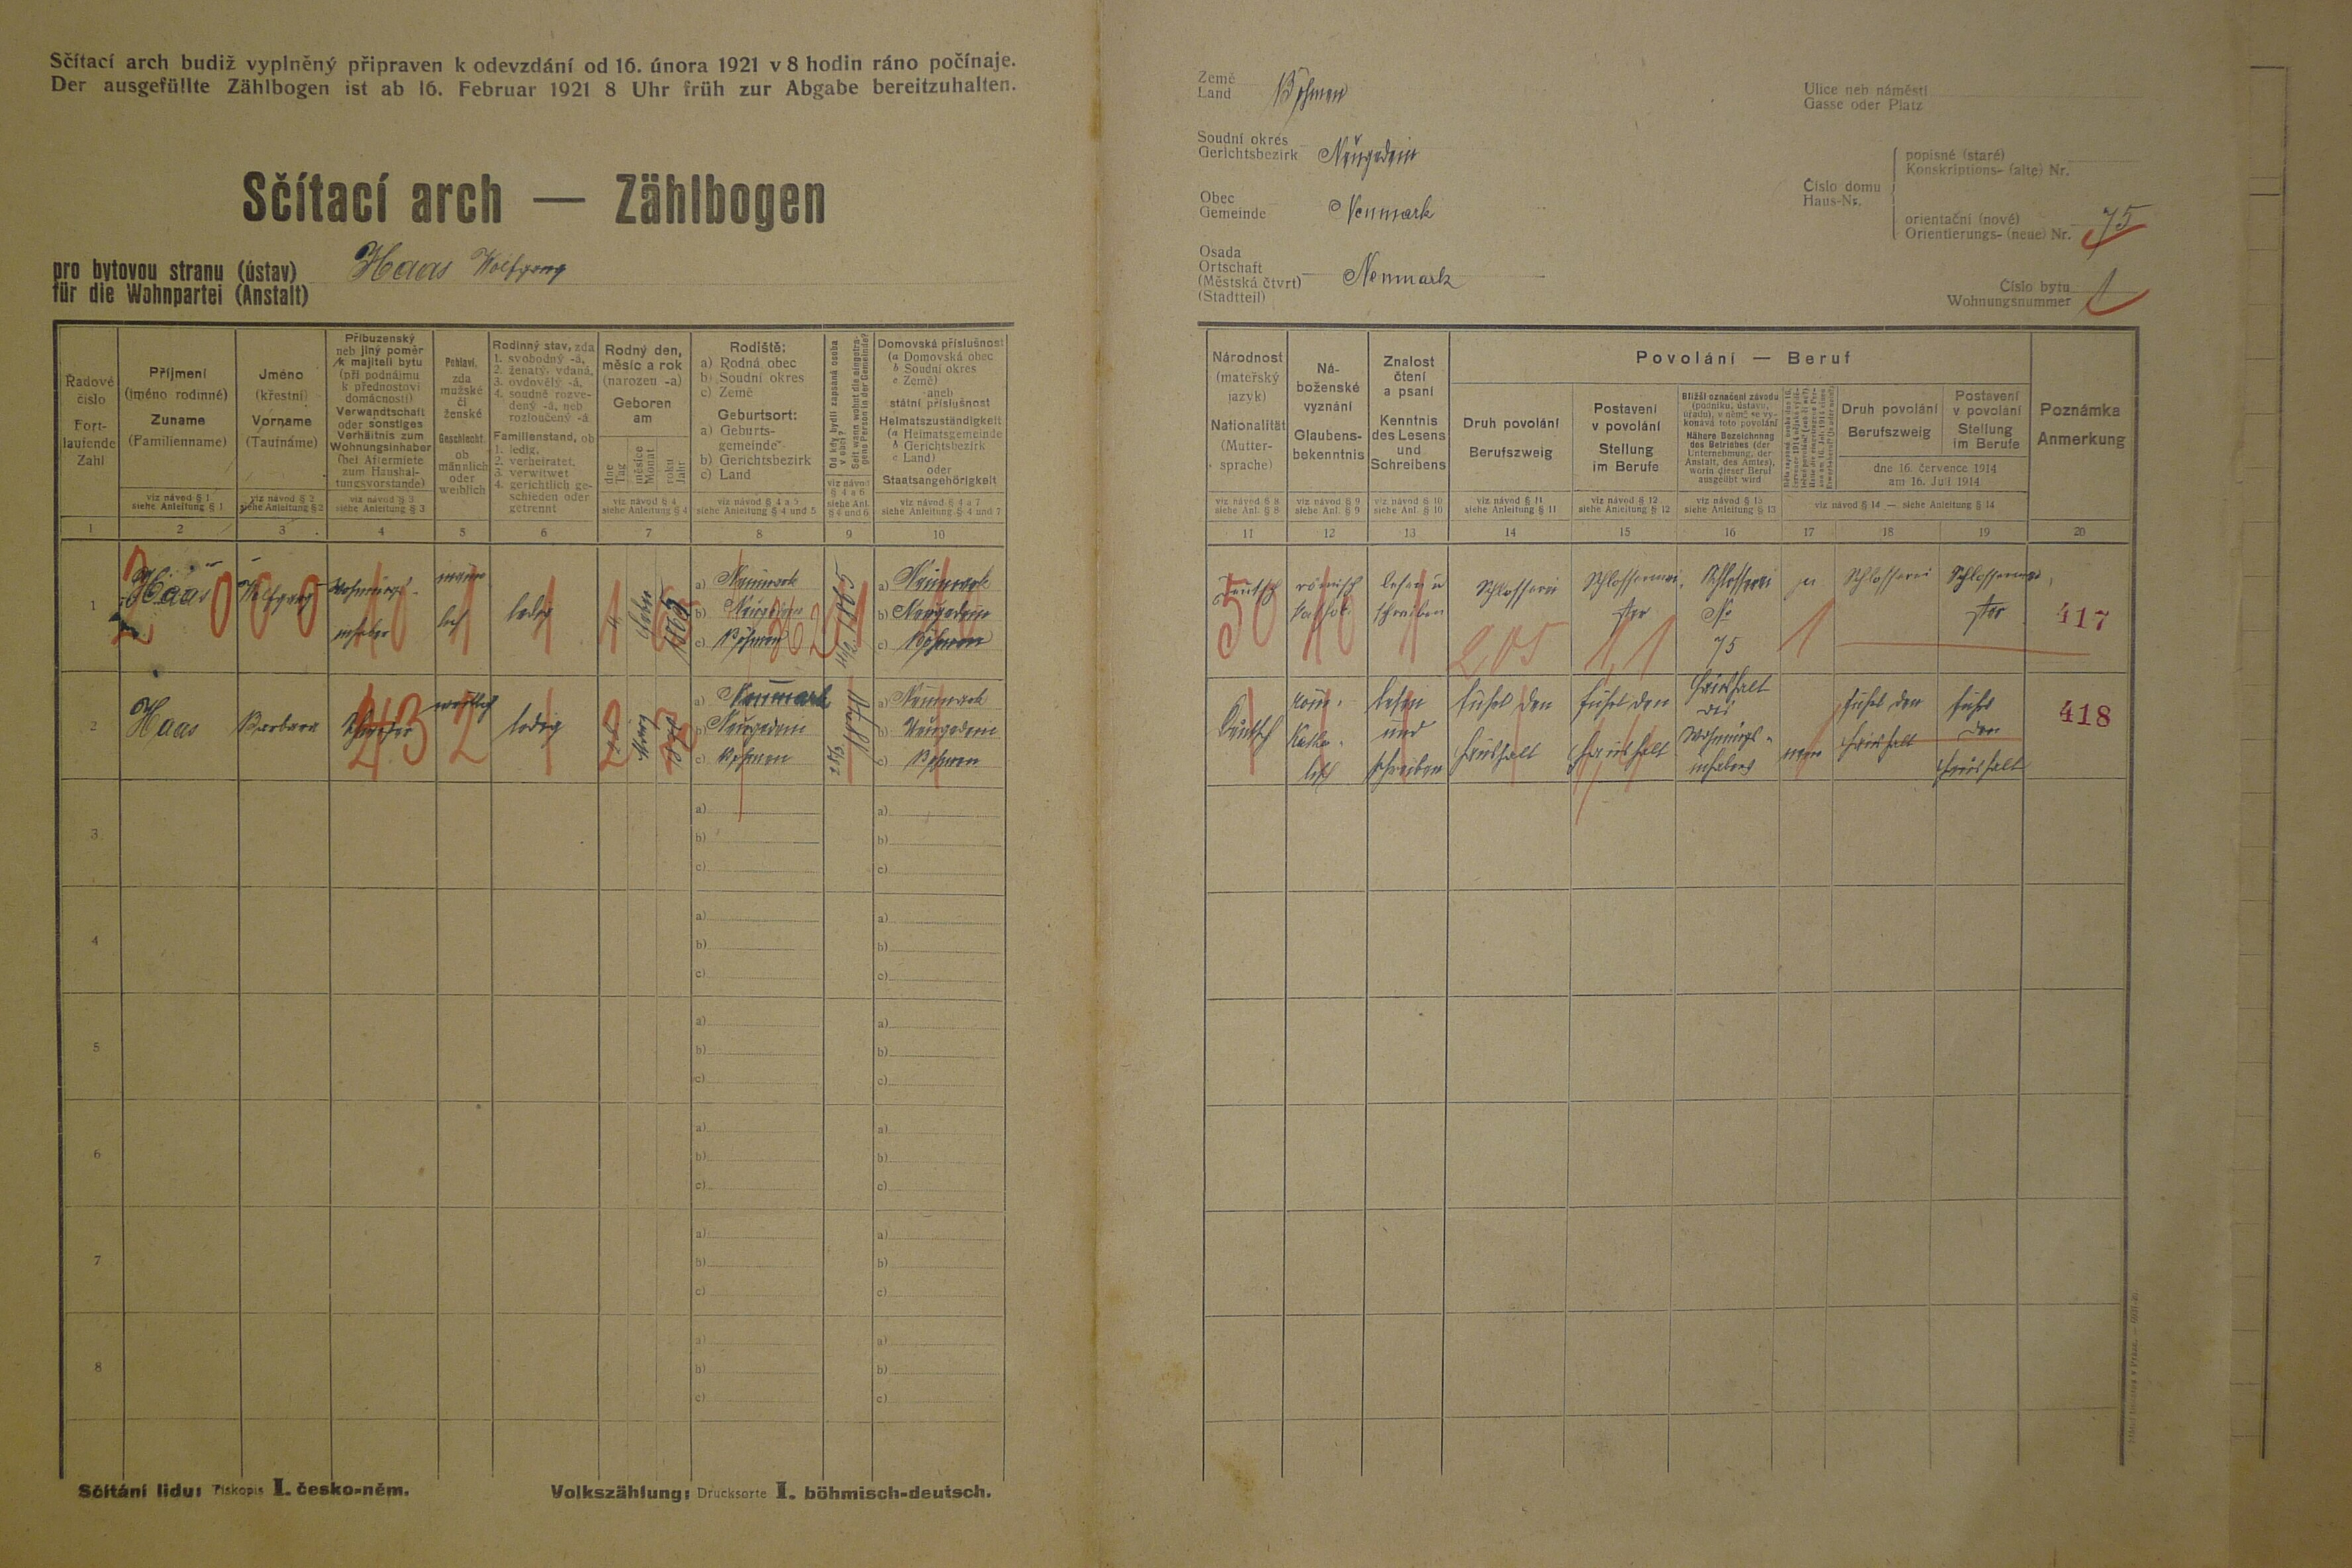 Sčítací arch budiž vyplněný připraven k odevzdání od 16. února 1921 v 8 hodin ráno počínaje.
Der ausgefüllte Zählbogen ist ab 16. Februar 1921 8 Uhr früh zur Abgabe bereitzuhalten.
Sčítací arch — Zählbogen
pro bytovou stranu (ústav)
für die Wohnpartei (Anstalt)
Haas Wolfgang
Řadové číslo
Fortlaufende Zahl
Příjmení
(jméno rodinné)
Zuname
(Familienname)
viz návod § 1
siehe Anleitung § 1
Jméno
(křestní)
Vorname
(Taufname)
viz návod § 2
siehe Anleitung § 2
Příbuzenský
neb jiný poměr
k majiteli bytu
(při podnájmu
k přednostovi
domácnosti)
Verwandtschaft
oder sonstiges
Verhältnis zum
Wohnungsinhaber
(bei Aftermiete
zum Haushal-
tungsvorstande)
viz návod § 3
siehe Anleitung § 3
Pohlaví,
zda
mužské
či
ženské
Geschlecht,
ob
männlich
oder
weiblich
Rodinný stav, zda
1. svobodný -á,
2. ženatý, vdaná,
3. ovdovělý -á,
4. soudně rozve-
dený -á, neb
rozloučený -á
Familienstand, ob
1. ledig,
2. verheiratet,
3. verwitwet
4. gerichtlich ge-
schieden oder
getrennt
Rodný den,
měsíc a rok
(narozen -a)
Geboren
am
dne
Tag
měsíce
Monat
roku
Jahr
viz návod § 4
siehe Anleitung § 4
Rodiště:
a) Rodná obec
b) Soudní okres
c) Země
Geburtsort:
a) Geburts-
gemeinde
b) Gerichtsbezirk
c) Land
viz návod § 4 a 5
siehe Anleitung § 4 und 5
Od kdy bydlí zapsaná osoba
v obci?
Seit wann wohnt die eingetra-
gene Person in der Gemeinde?
viz návod
§ 4 a 6
siehe Anl.
§ 4 und 6
Domovská příslušnost
(a Domovská obec
b Soudní okres
c Země)
aneb
státní příslušnost
Heimatszuständigkeit
(a Heimatsgemeinde
b Gerichtsbezirk
c Land)
oder
Staatsangehörigkeit
viz návod § 4 a 7
siehe Anleitung § 4 und 7
1 2 3 4 5 6 7 8 9 10
1
Haas
Wolfgang
Wohnungs-
inhaber
männ
lich
ledig
4
1865
a) Neumark
b) Neugedein
c) Böhmen
1865
a) Neumark
b) Neugedein
c) Böhmen
2
Haas
Barbara
Schwester
weiblich
ledig
a) Neumark
b) Neugedein
c) Böhmen
a) Neumark
b) Neugedein
c) Böhmen
3
a) a)
b) b)
c) c)
4
a) a)
b) b)
c) c)
5
a) a)
b) b)
c) c)
6
a) a)
b) b)
c) c)
7
a) a)
b) b)
c) c)
8
a) a)
b) b)
c) c)
Sčítání lidu: Tiskopis I. česko-něm.
Volkszählung: Drucksorte I. böhmisch-deutsch.
Země
Land
Böhmen
Soudní okres
Gerichtsbezirk
Neugedein
Obec
Gemeinde
Neumark
Osada
Ortschaft
(Městská čtvrť)
(Stadtteil)
Neumark
Ulice neb náměstí
Gasse oder Platz
Číslo domu
Haus-Nr.
popisné (staré)
Konskriptions- (alte) Nr.
orientační (nové)
Orientierungs- (neue) Nr.
75
Číslo bytu
Wohnungsnummer
1
Národnost
(mateřský
jazyk)
Nationalität
(Mutter-
sprache)
viz návod § 8
siehe Anl. § 8
Ná-
boženské
vyznání
Glaubens-
bekenntnis
viz návod § 9
siehe Anl. § 9
Znalost
čtení
a psaní
Kenntnis
des Lesens
und
Schreibens
viz návod § 10
siehe Anl. § 10
Povolání — Beruf
Druh povolání
Berufszweig
viz návod § 11
siehe Anleitung § 11
Postavení
v povolání
Stellung
im Berufe
viz návod § 12
siehe Anleitung § 12
Bližší označení závodu
(podniku, ústavu,
úřadu), v němž se vy-
konává toto povolání
Nähere Bezeichnung
des Betriebes (der
Unternehmung, der
Anstalt, des Amtes),
worin dieser Beruf
ausgeübt wird
viz návod § 13
siehe Anleitung § 13
Druh povolání
Berufszweig
Postavení
v povolání
Stellung
im Berufe
dne 16. července 1914
am 16. Juli 1914
viz návod § 14 — siehe Anleitung § 14
Poznámka
Anmerkung
11 12 13 14 15 16 17 18 19 20
Deutsch
römisch
kathol.
lesen u
schreiben
Schlosserei
Schlossermei-
ster
Schlosserei
No
75
ja
Schlosserei
Schlossermei-
ster
50
2,05
1,1
417
Deutsch
röm.-
katho-
lisch
lesen
und
schreiben
führt den
Haushalt
führt den
Haushalt
Haushalt
des
Wohnungs-
inhabers
nein
führt den
Haushalt
führt
den
Haushalt
418